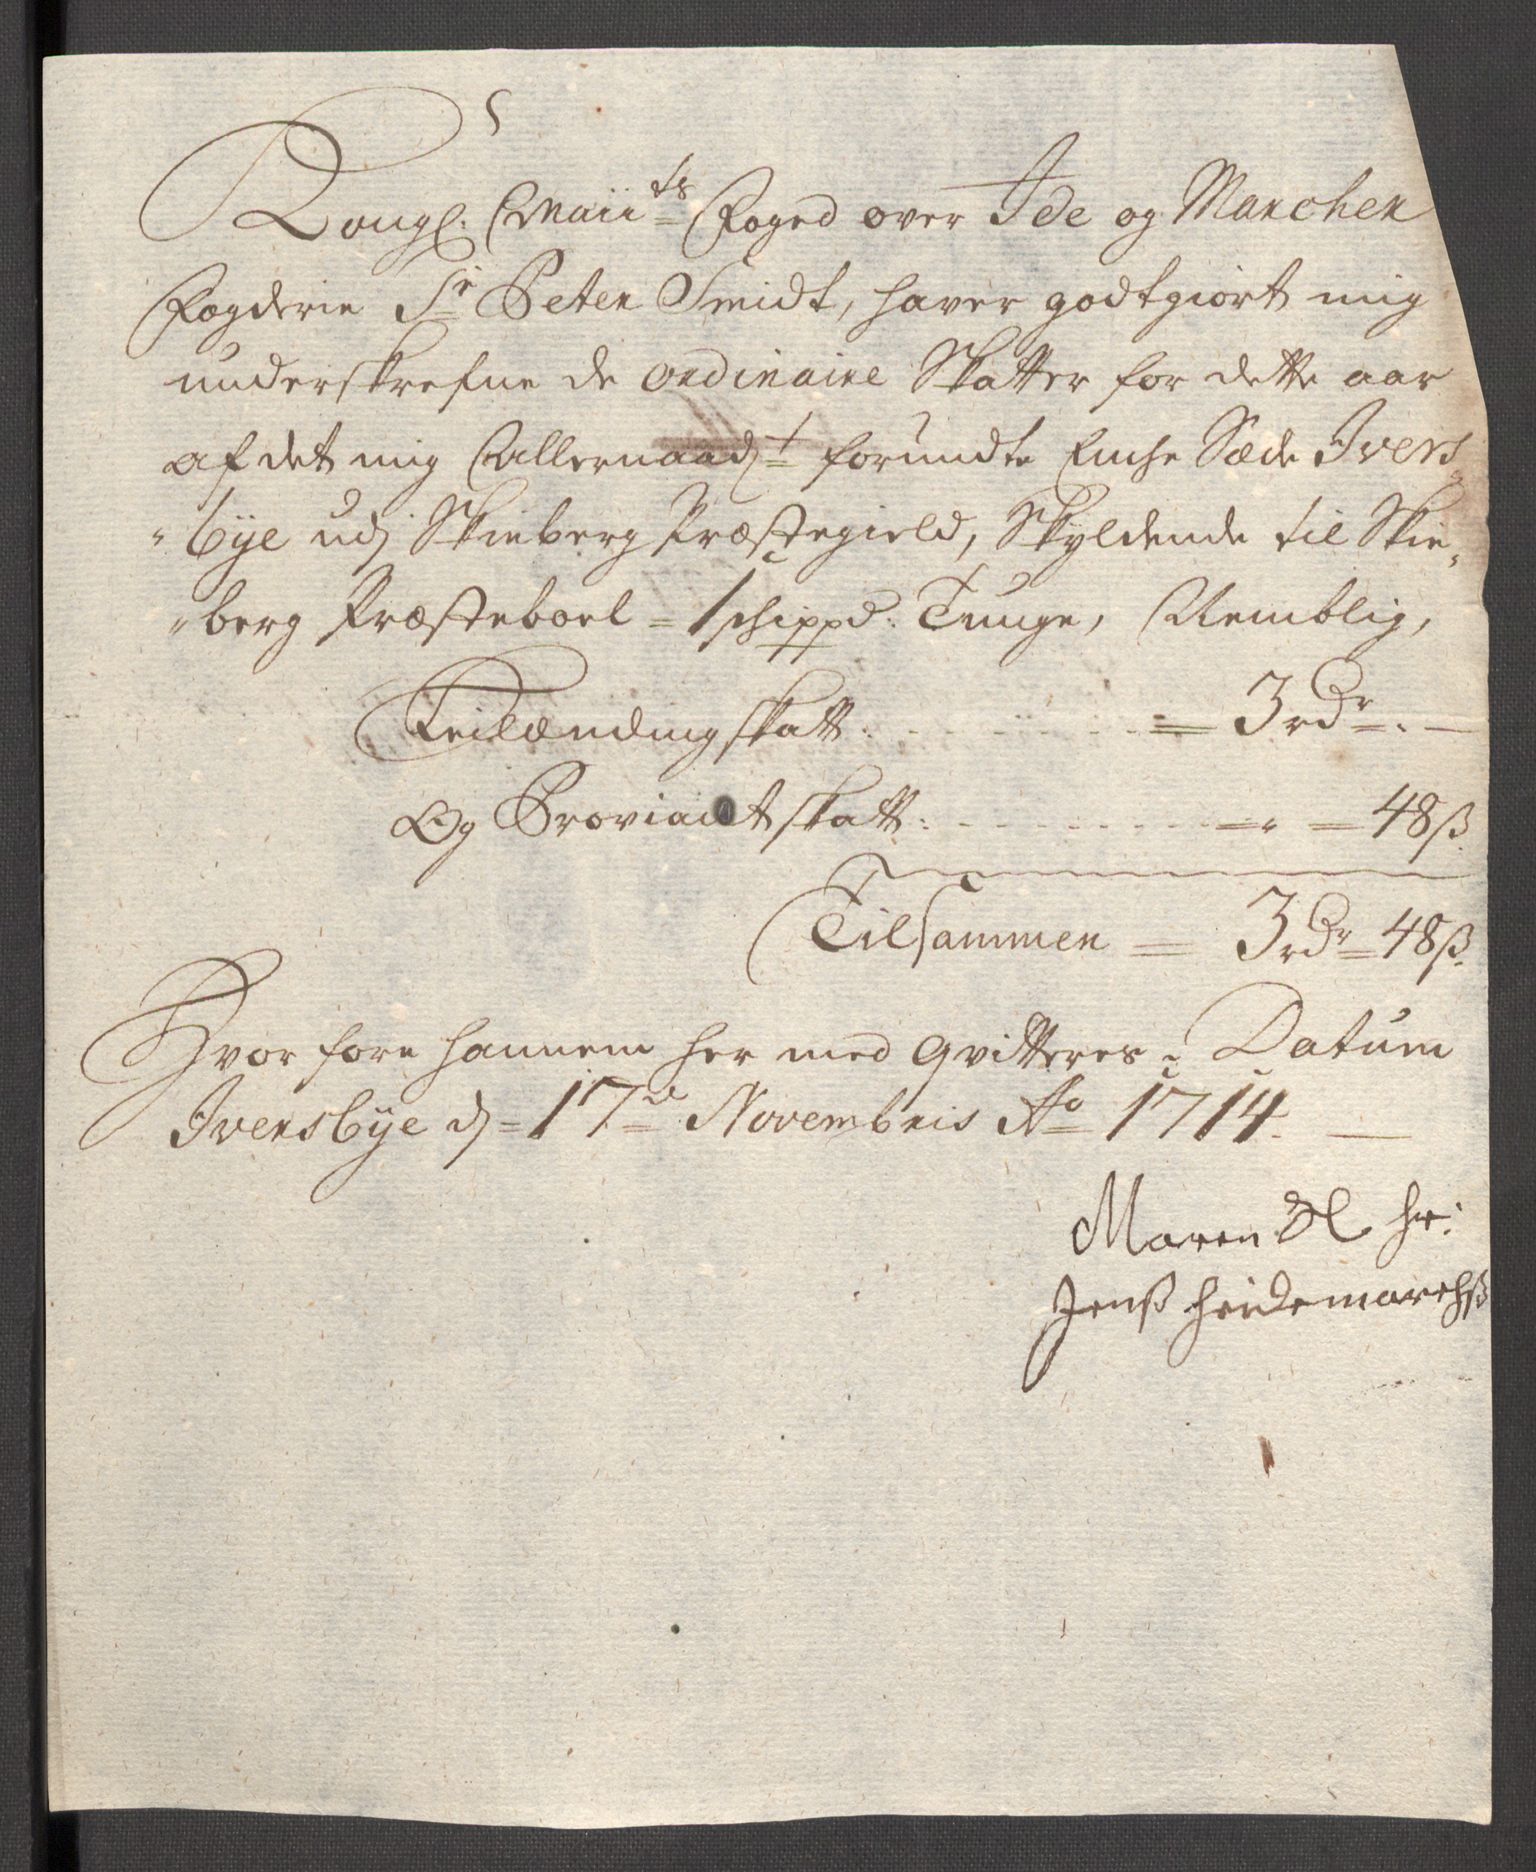 Kongl. Maiits Foged over Ide og Marcher
Fogderie Sr Peter Smidt, haver godtgiort mig
underskrefne de ordinaire Skatter for dette aar
af det mig Allernaadt forundte Encke Sæde Ivers
"bÿe udj Skieberg Præstegield, Skyldende til Skie„
"berg Præsteboel = 1 schippd: Tunge, Nemblig,
Leilændingskatt. = 3 rdr. —
Og Proviantskatt: = " = 48 ß.
Tilsammen = 3 rdr = 48 ß.
Hvor fore hannem her med qvitteres. Datum
IversbÿE dj = 17de Novembris Ao 1714. —
Maren Sl hr:
Jenß Heidemarchß